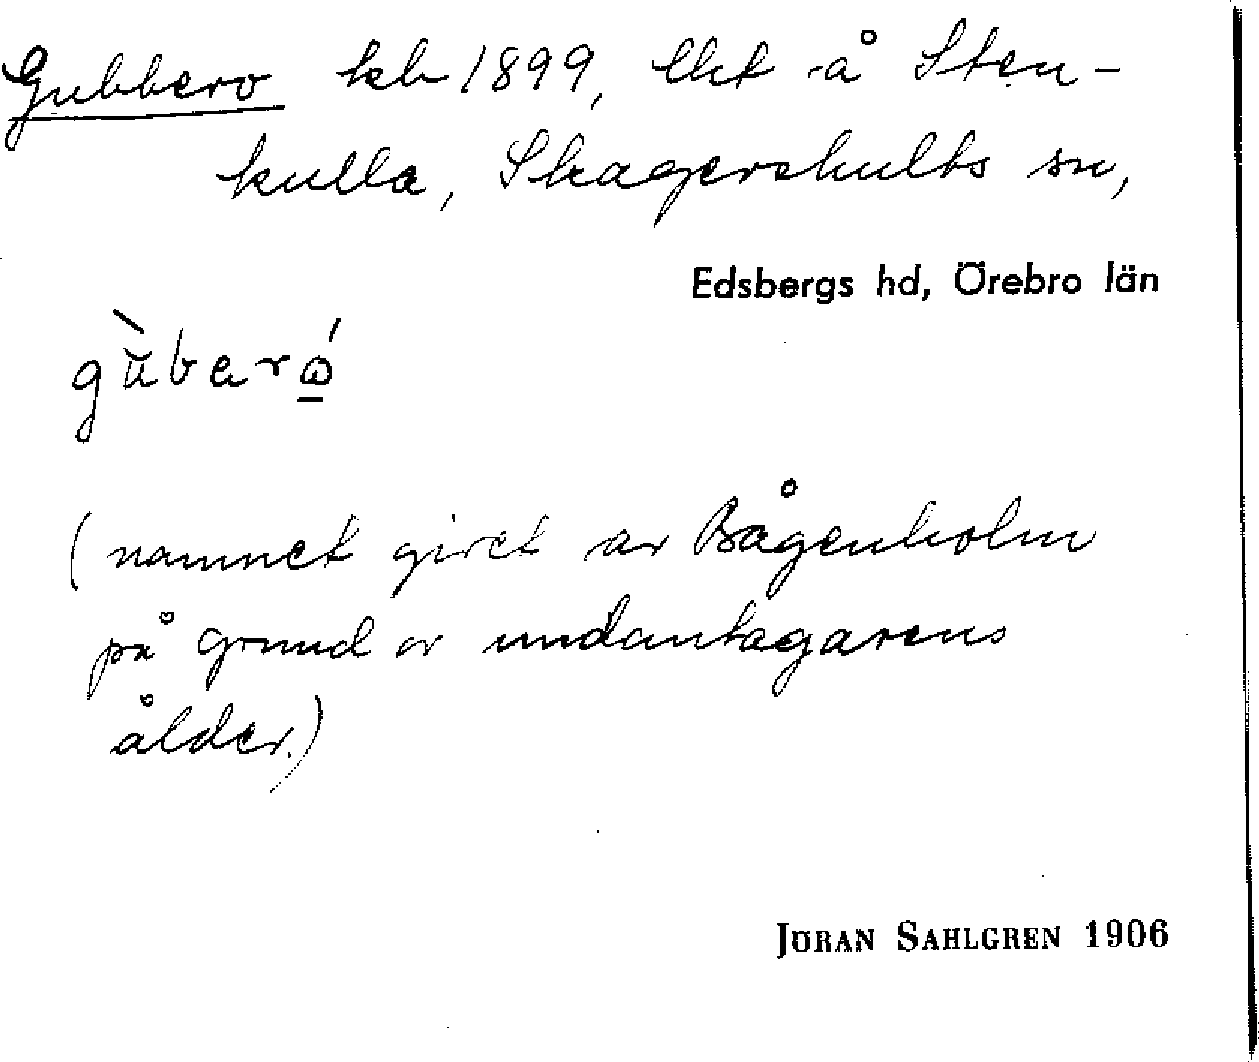 Gubbero kb 1899, lht å Sten-
kulla, Skagershults sn,
Edsbergs hd, Örebro län
gùbaró
(namnet givet av Bågenholm
på grund av undantagarens
ålder.)
JÖRAN SAHLGREN 1906